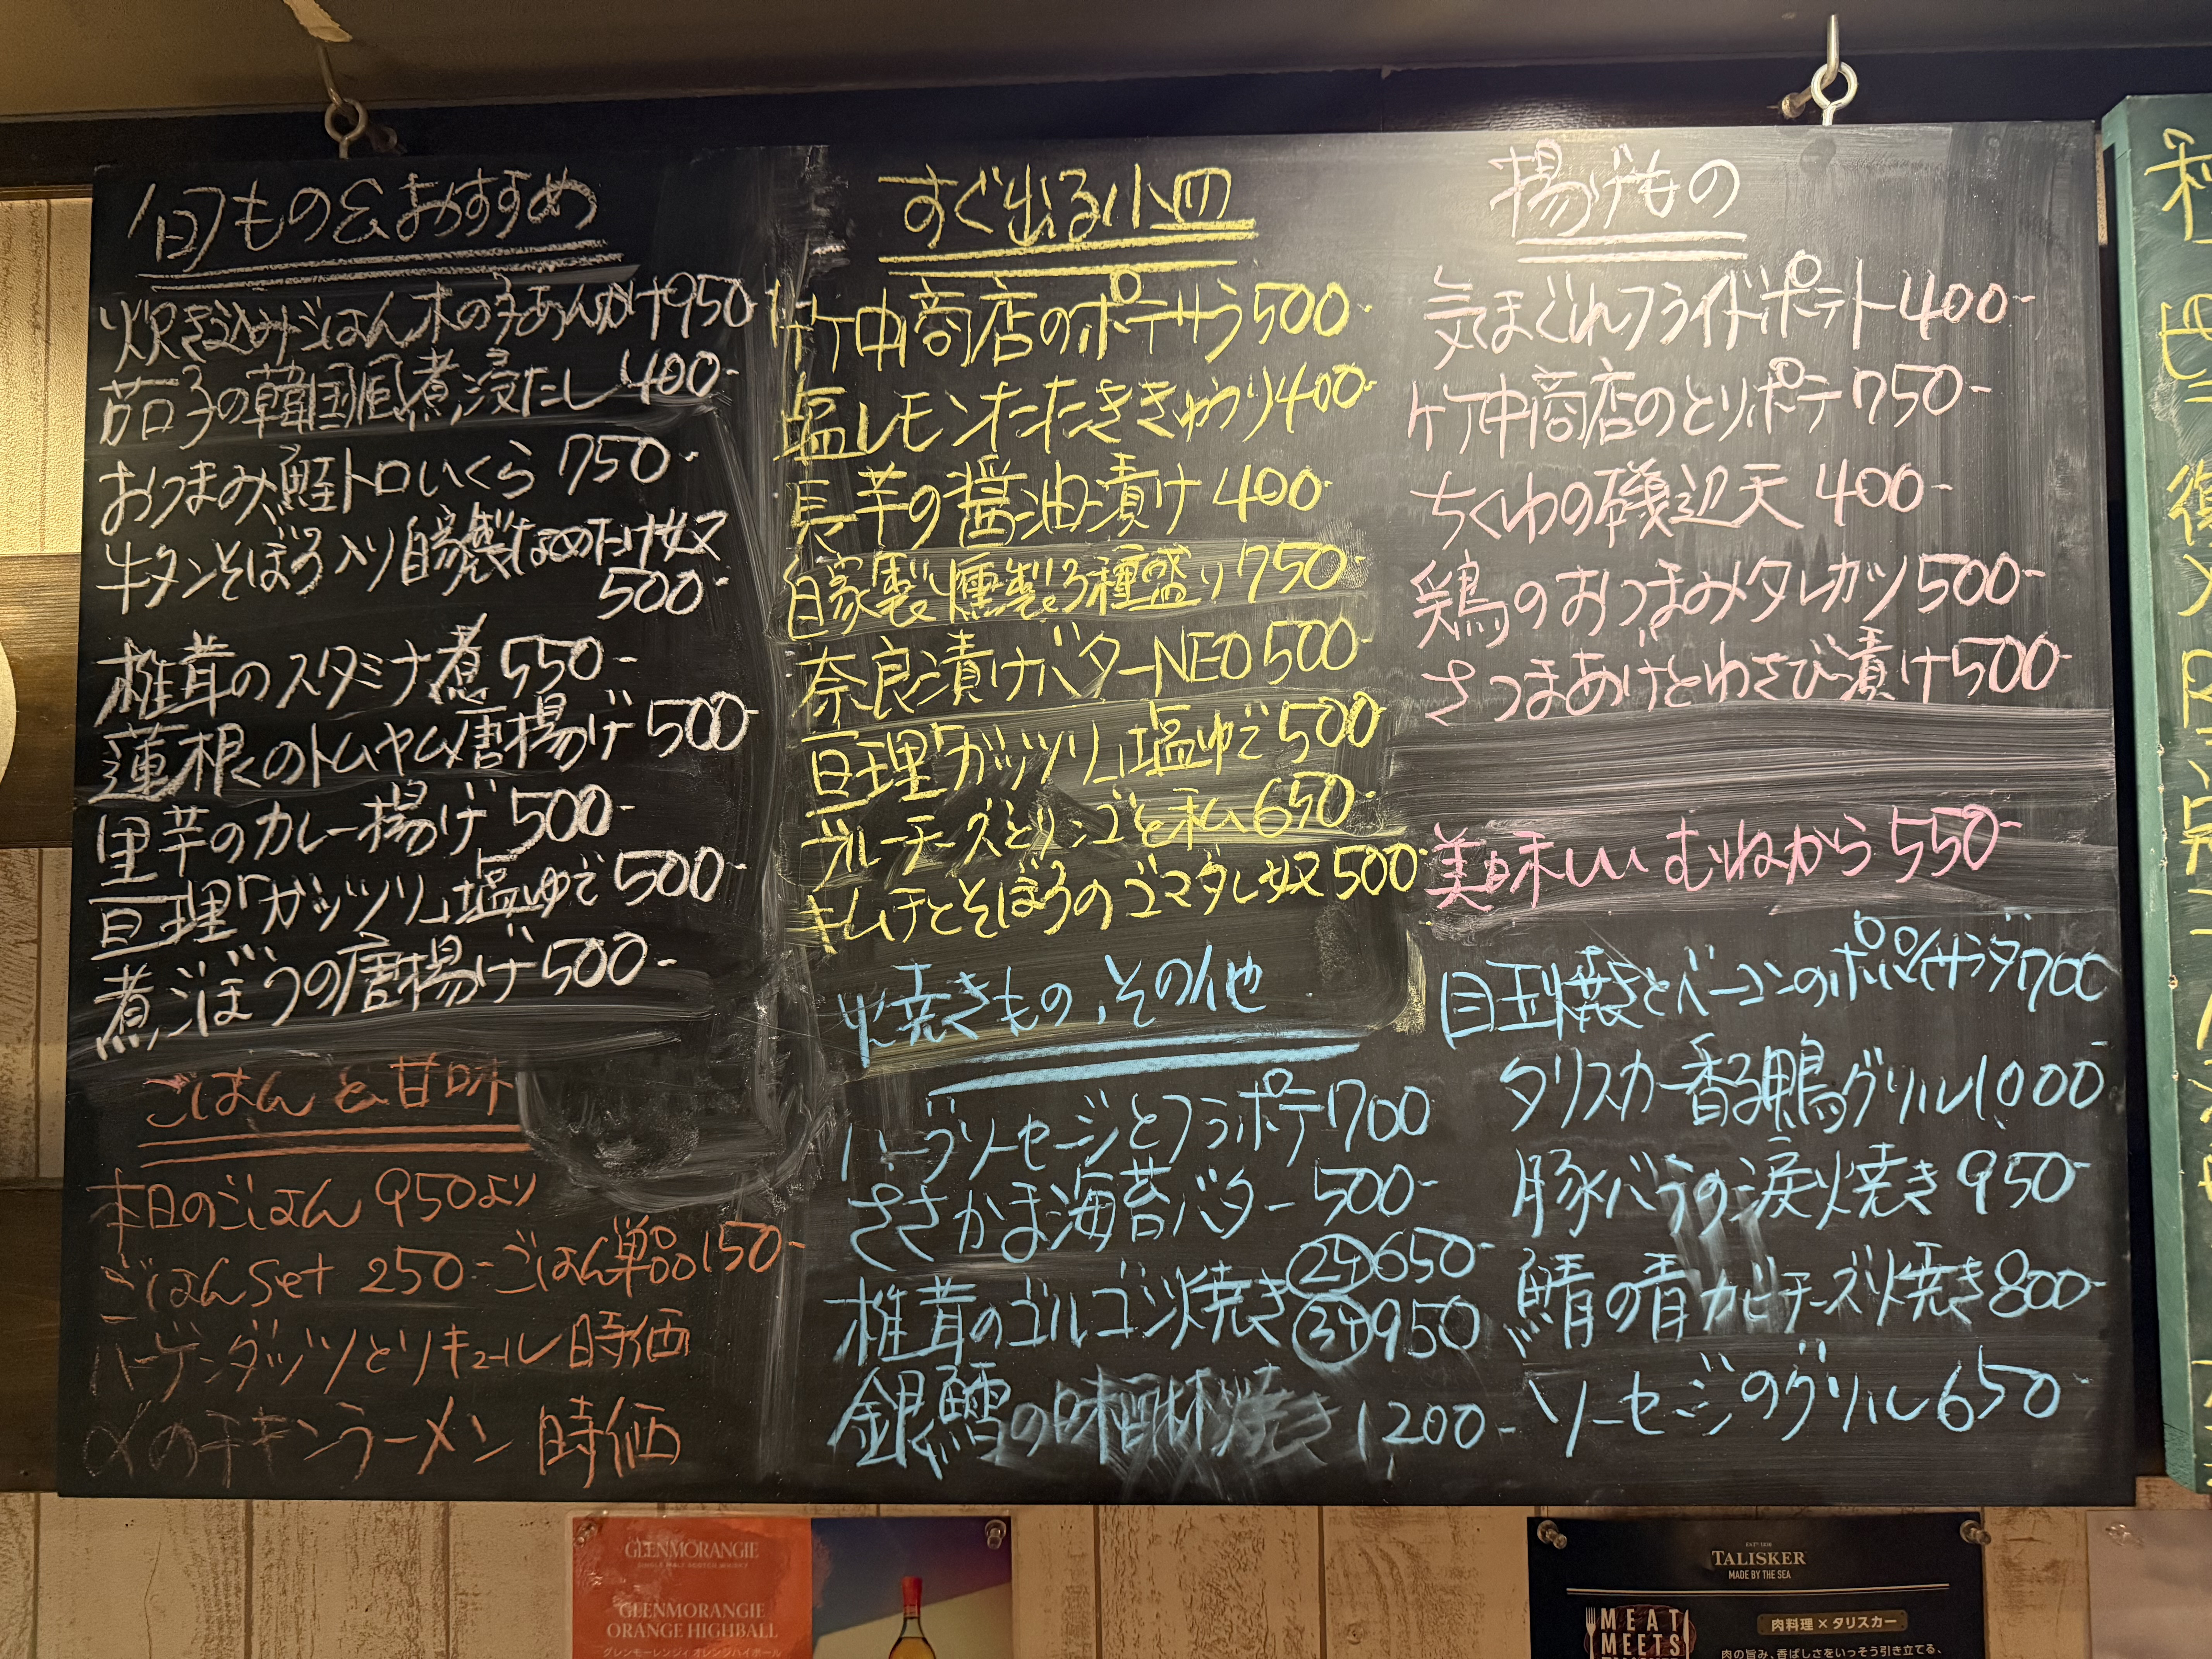 旬もの&おすすめ
炊き込みごはん木の子あんかけ950-
茄子の韓国風煮浸たし400-
おつまみ鮭トロいくら 750-
牛タンそぼろ入り自家製なめたけ奴
500-
椎茸のスタミナ煮550-
蓮根のトムヤム唐揚げ500-
里芋のカレー揚げ500-
亘理「ガッツリ」塩ゆで500-
煮ごぼうの唐揚げ500-
ごはんと甘味
本日のごはん 950より
ごはんset 250-ごはん単品150-
ハーゲンダッツとリキュール時価
〆のチキンラーメン 時価
すぐ出る小皿
竹中商店のポテサラ500-
塩レモンたたききゅうり400-
長芋の醤油漬け400-
自家製燻製3種盛り750-
奈良漬けバターNEO500-
亘理「ガッツリ」塩ゆで500
ブルーチーズとリンゴと私650-
キムチとそぼろのゴマダレ奴500-
焼きもの、その他
ハーブソーセージとフラポテ700
ささかま海苔バター500-
椎茸のゴルゴン焼き②ケ650-
③ケ950
銀鱈の味醂焼き1200-
揚げもの
気まぐれフライドポテト400-
竹中商店のとりポテ750-
ちくわの磯辺天400-
鶏のおつまみタレカツ500-
さつまあげとわさび漬け500-
美味しいむねから550-
目玉焼きとベーコンのポパイサラダ700
タリスカー香る鴨グリル1000-
豚バラの涙焼き950-
鯖の青カビチーズ焼き800-
ソーセージのグリル650
GLENMORANGIE
GLENMORANGIE
ORANGE HIGHBALL
グレンモーレンジィ オレンジハイボール
TALISKER
MADE BY THE SEA
MEAT
MEETS
肉料理×タリスカー
肉の旨み、香ばしさをいっそう引き立てる、